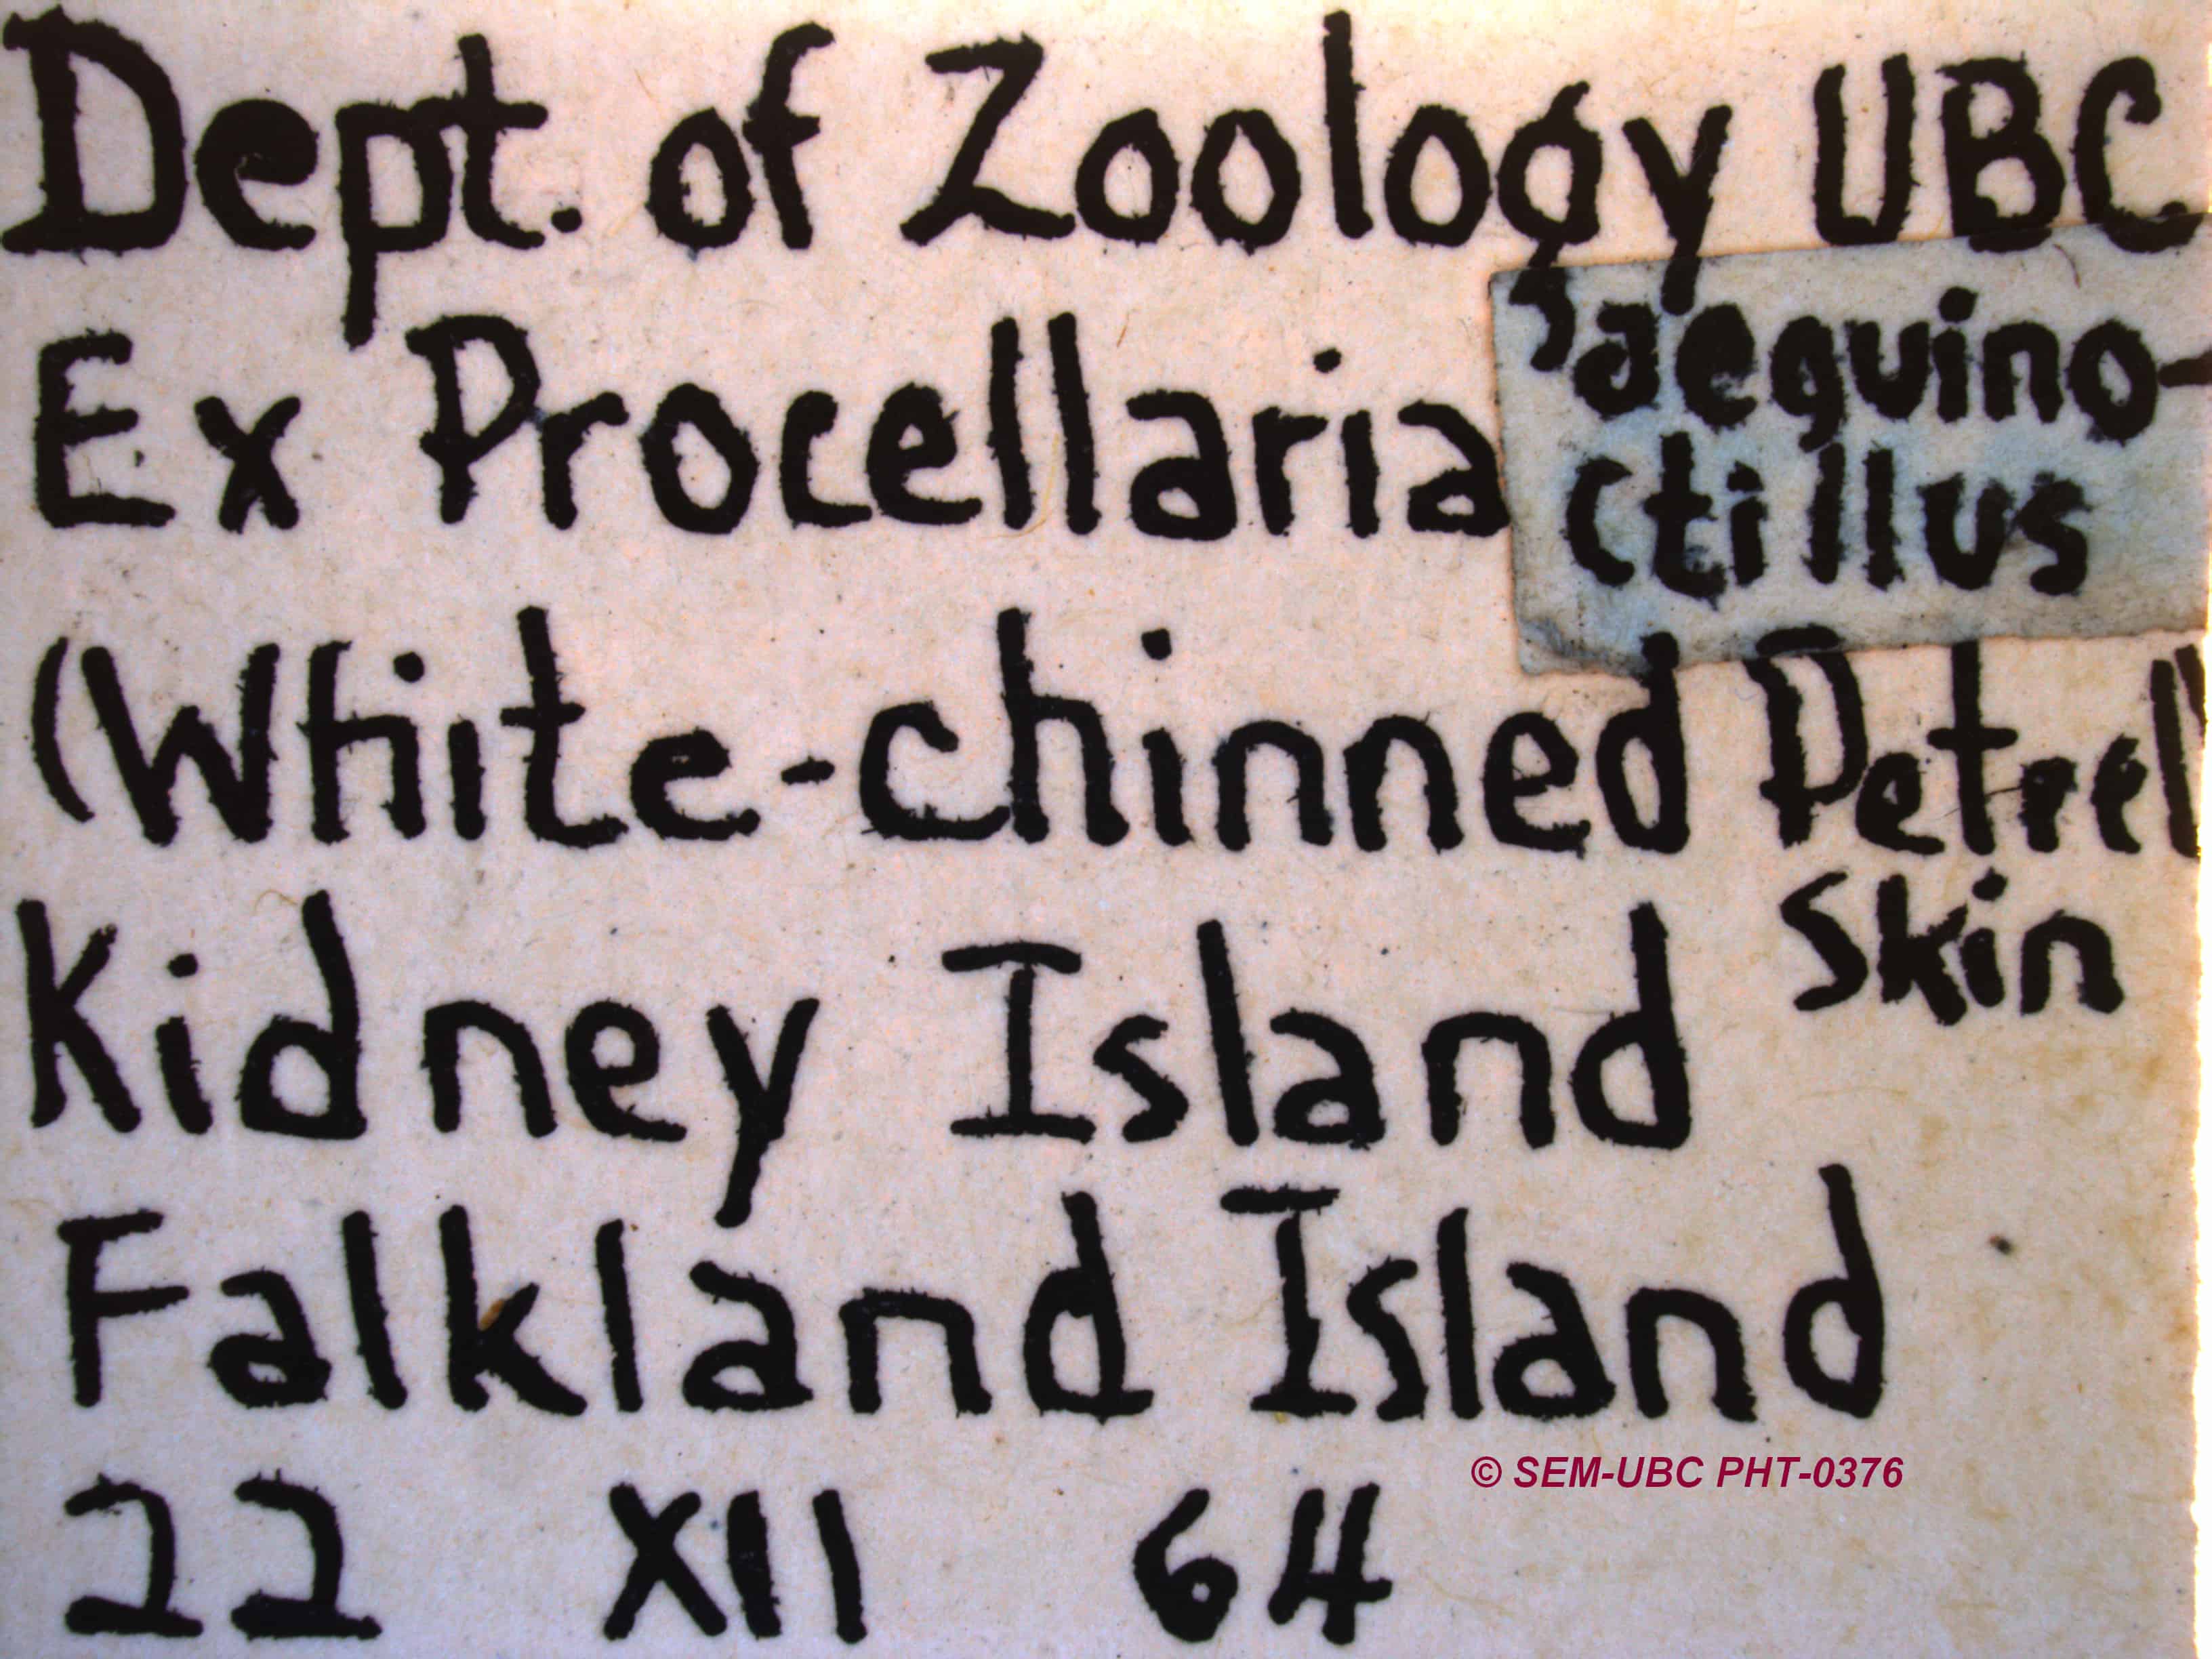 Dept. of Zoology UBC
Ex Procellaria aequino-
ctillus
(White-chinned Petrel)
Skin
Kidney Island
Falkland Island
22 XII 64
© SEM-UBC PHT-0376